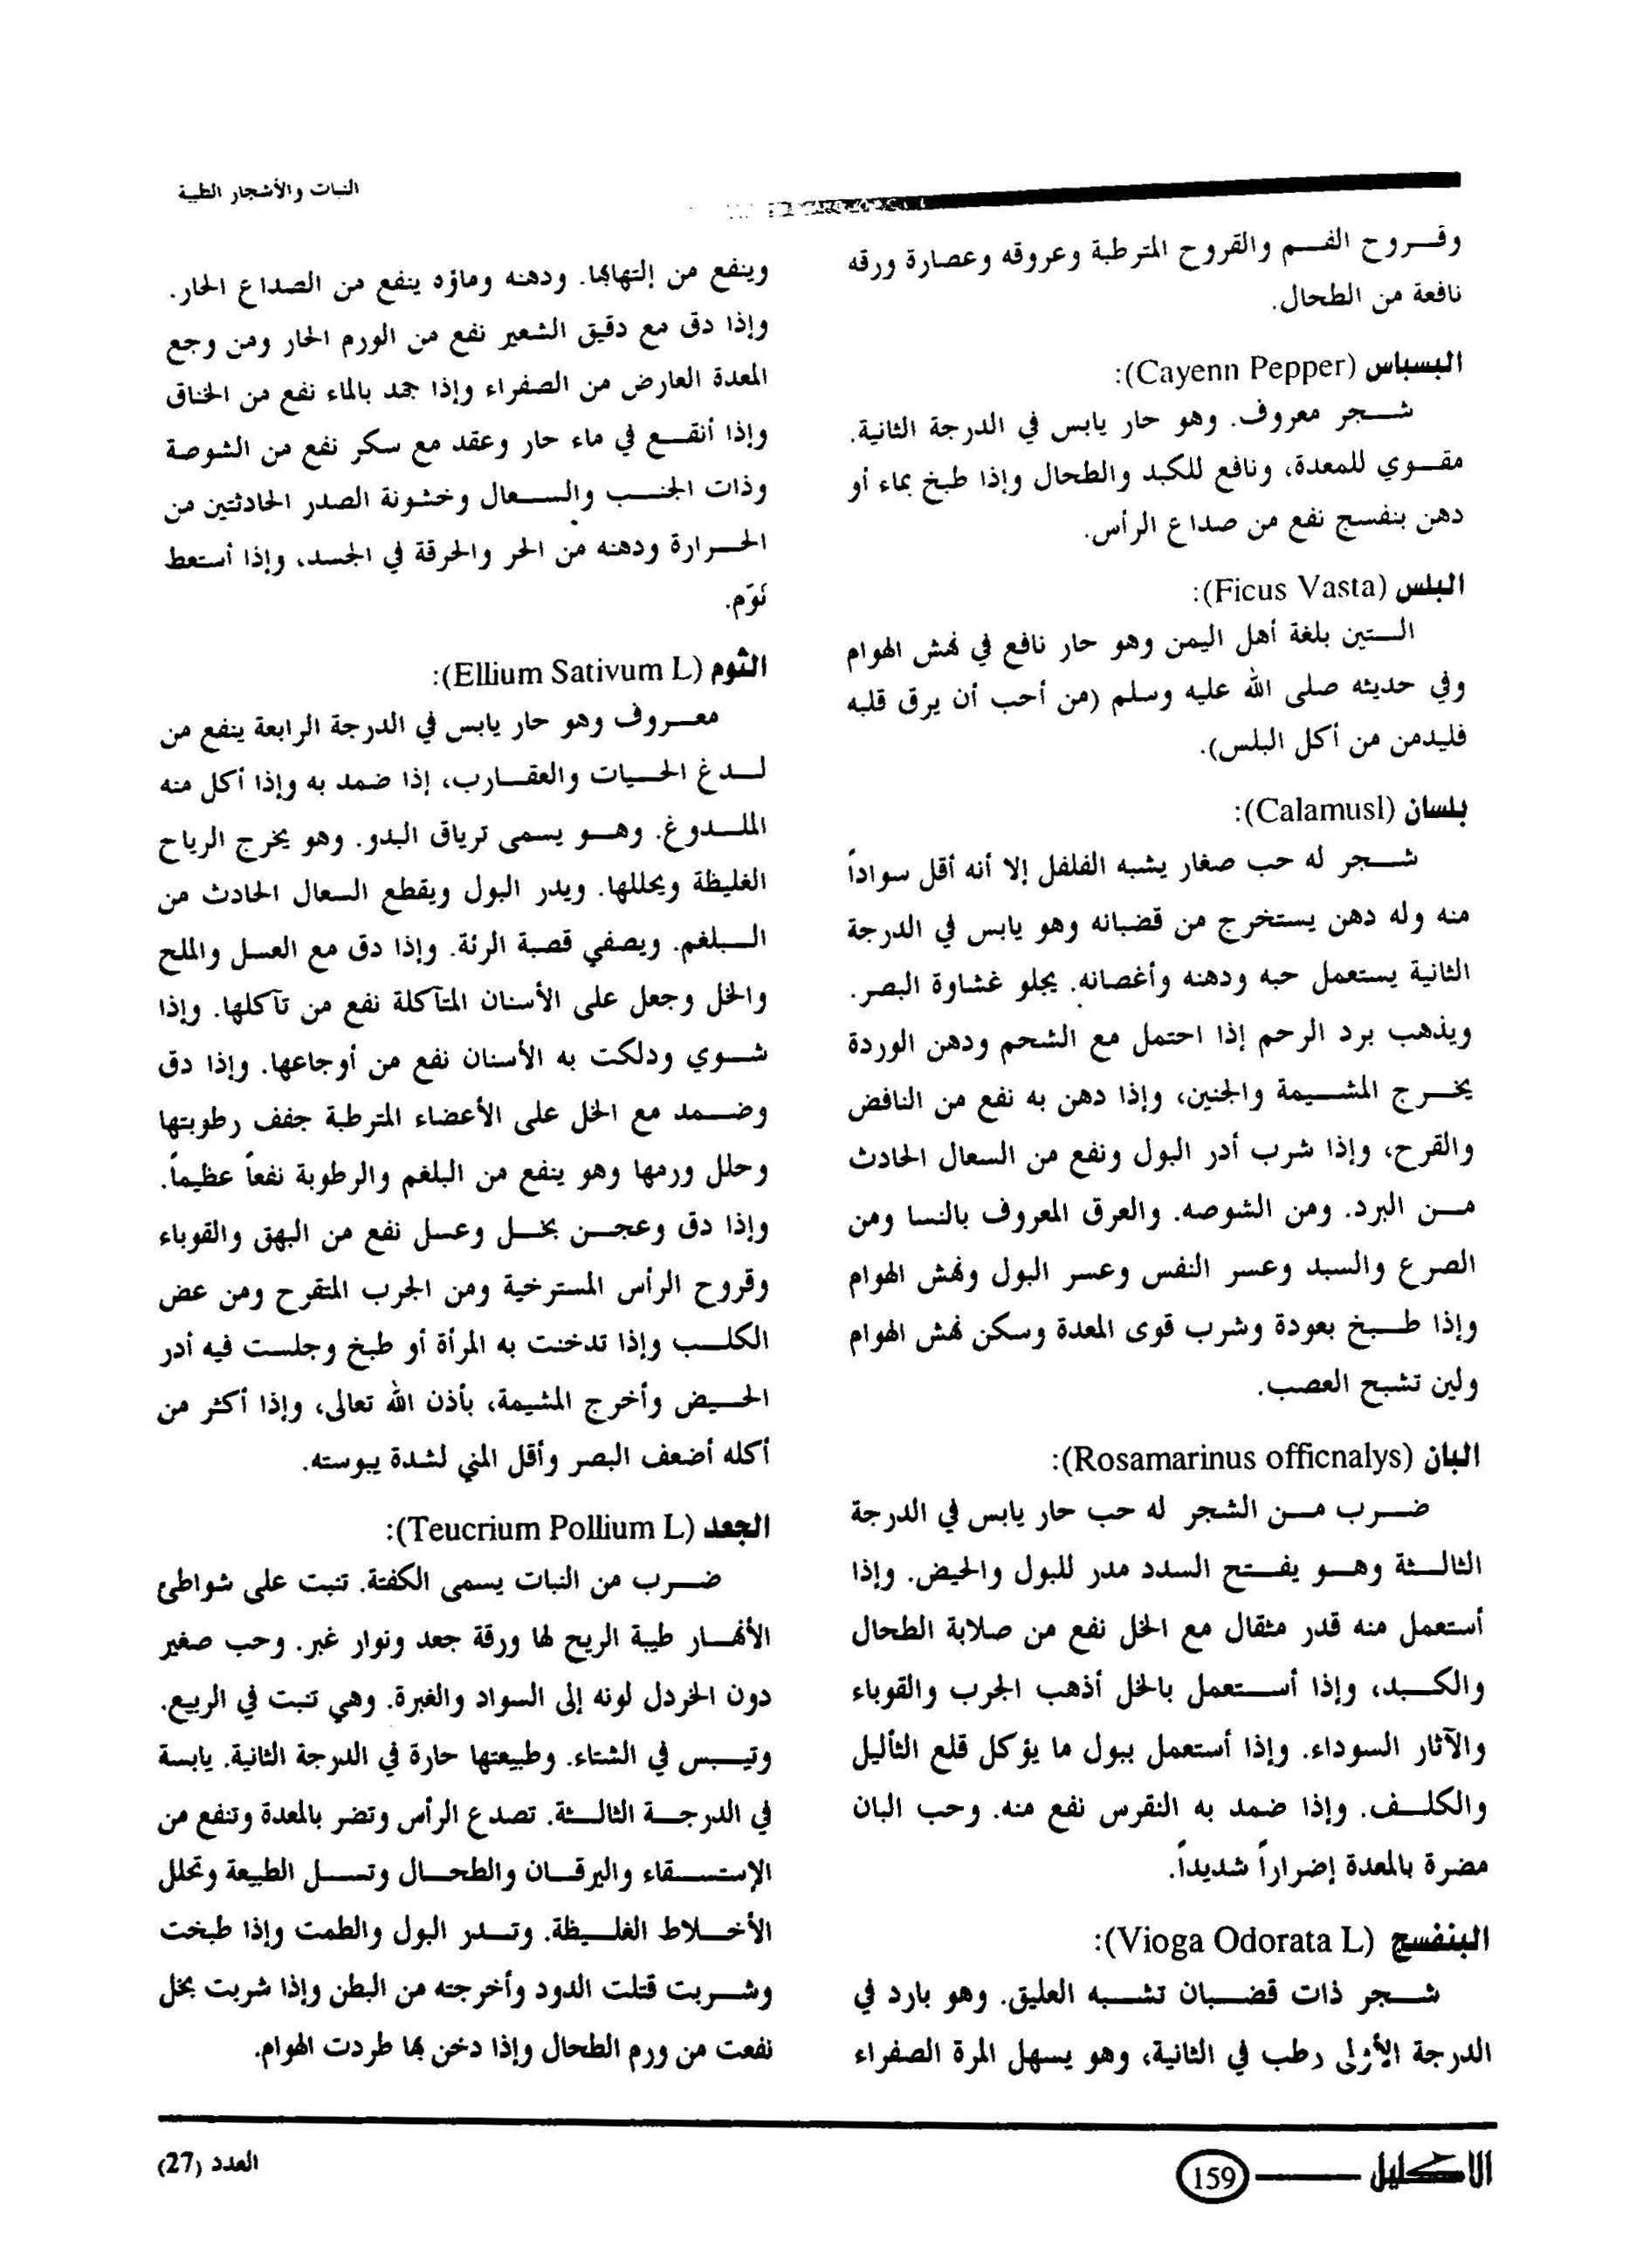 النبات والأشجار الطبية
وقروح الفم والقروح المترطبة وعروقه وعصارة ورقه
نافعة من الطحال.
البسباس (Cayenn Pepper):
شجر معروف. وهو حار يابس في الدرجة الثانية.
مقوي للمعدة، ونافع للكبد والطحال وإذا طبخ بماء أو
دهن بنفسج نفع من صداع الرأس.
البلس (Ficus Vasta):
التين بلغة أهل اليمن وهو حار نافع في نهش الهوام
وفي حديثه صلى الله عليه وسلم (من أحب أن يرق قلبه
فليدمن من أكل البلس).
بلسان (Calamusl):
شجر له حب صغار يشبه الفلفل إلا أنه أقل سواداً
منه وله دهن يستخرج من قضبانه وهو يابس في الدرجة
الثانية يستعمل حبه ودهنه وأغصانه. يجلو غشاوة البصر.
ويذهب برد الرحم إذا احتمل مع الشحم ودهن الوردة
يخرج المشيمة والجنين، وإذا دهن به نفع من النافض
والقرح، وإذا شرب أدر البول ونفع من السعال الحادث
من البرد. ومن الشوصه. والعرق المعروف بالنسا ومن
الصرع والسبد وعسر النفس وعسر البول ونهش الهوام
وإذا طبخ بعودة وشرب قوى المعدة وسكن نهش الهوام
ولين تشبح العصب.
البان (Rosamarinus officnalys):
ضرب من الشجر له حب حار يابس في الدرجة
الثالثة وهو يفتح السدد مدر للبول والحيض. وإذا
أستعمل منه قدر مثقال مع الخل نفع من صلابة الطحال
والكبد، وإذا أستعمل بالخل أذهب الجرب والقوباء
والآثار السوداء. وإذا أستعمل ببول ما يؤكل قلع الثأليل
والكلف. وإذا ضمد به النقرس نفع منه. وحب البان
مضرة بالمعدة إضراراً شديداً.
البنفسج (Vioga Odorata L):
شجر ذات قضبان تشبه العليق. وهو بارد في
الدرجة الأولى رطب في الثانية، وهو يسهل المرة الصفراء
وينفع من إلتهابها. ودهنه وماؤه ينفع من الصداع الحار.
وإذا دق مع دقيق الشعير نفع من الورم الحار ومن وجع
المعدة العارض من الصفراء وإذا جمد بالماء نفع من الخناق
وإذا أنقع في ماء حار وعقد مع سكر نفع من الشوصة
وذات الجنب والسعال وخشونة الصدر الحادثتين من
الحرارة ودهنه من الحر والحرقة في الجسد، وإذا أستعط
نَوّم.
الثوم (Ellium Sativum L):
معروف وهو حار يابس في الدرجة الرابعة ينفع من
لدغ الحيات والعقارب، إذا ضمد به وإذا أكل منه
الملدوغ. وهو يسمى ترياق البدو. وهو يخرج الرياح
الغليظة ويحللها. ويدر البول ويقطع السعال الحادث من
البلغم. ويصفي قصبة الرئة. وإذا دق مع العسل والملح
والخل وجعل على الأسنان المتآكلة نفع من تآكلها. وإذا
شوي ودلكت به الأسنان نفع من أوجاعها. وإذا دق
وضمد مع الخل على الأعضاء المترطبة جفف رطوبتها
وحلل ورمها وهو ينفع من البلغم والرطوبة نفعاً عظيماً.
وإذا دق وعجن بخل وعسل نفع من البهق والقوباء
وقروح الرأس المسترخية ومن الجرب المتقرح ومن عض
الكلب وإذا تدخنت به المرأة أو طبخ وجلست فيه أدر
الحيض وأخرج المشيمة، بأذن الله تعالى، وإذا أكثر من
أكله أضعف البصر وأقل المني لشدة يبوسته.
الجعد (Teucrium Pollium L):
ضرب من النبات يسمى الكفتة. تنبت على شواطئ
الأنهار طيبة الريح لها ورقة جعد ونوار غبر. وحب صغير
دون الخردل لونه إلى السواد والغبرة. وهي تنبت في الربيع.
وتيبس في الشتاء. وطبيعتها حارة في الدرجة الثانية. يابسة
في الدرجة الثالثة. تصدع الرأس وتضر بالمعدة وتنفع من
الإستسقاء واليرقان والطحال وتسل الطبيعة وتحلل
الأخلاط الغليظة. وتدر البول والطمث وإذا طبخت
وشربت قتلت الدود وأخرجته من البطن وإذا شربت بخل
نفعت من ورم الطحال وإذا دخن بها طردت الهوام.
الاكليل 159 العدد (27)